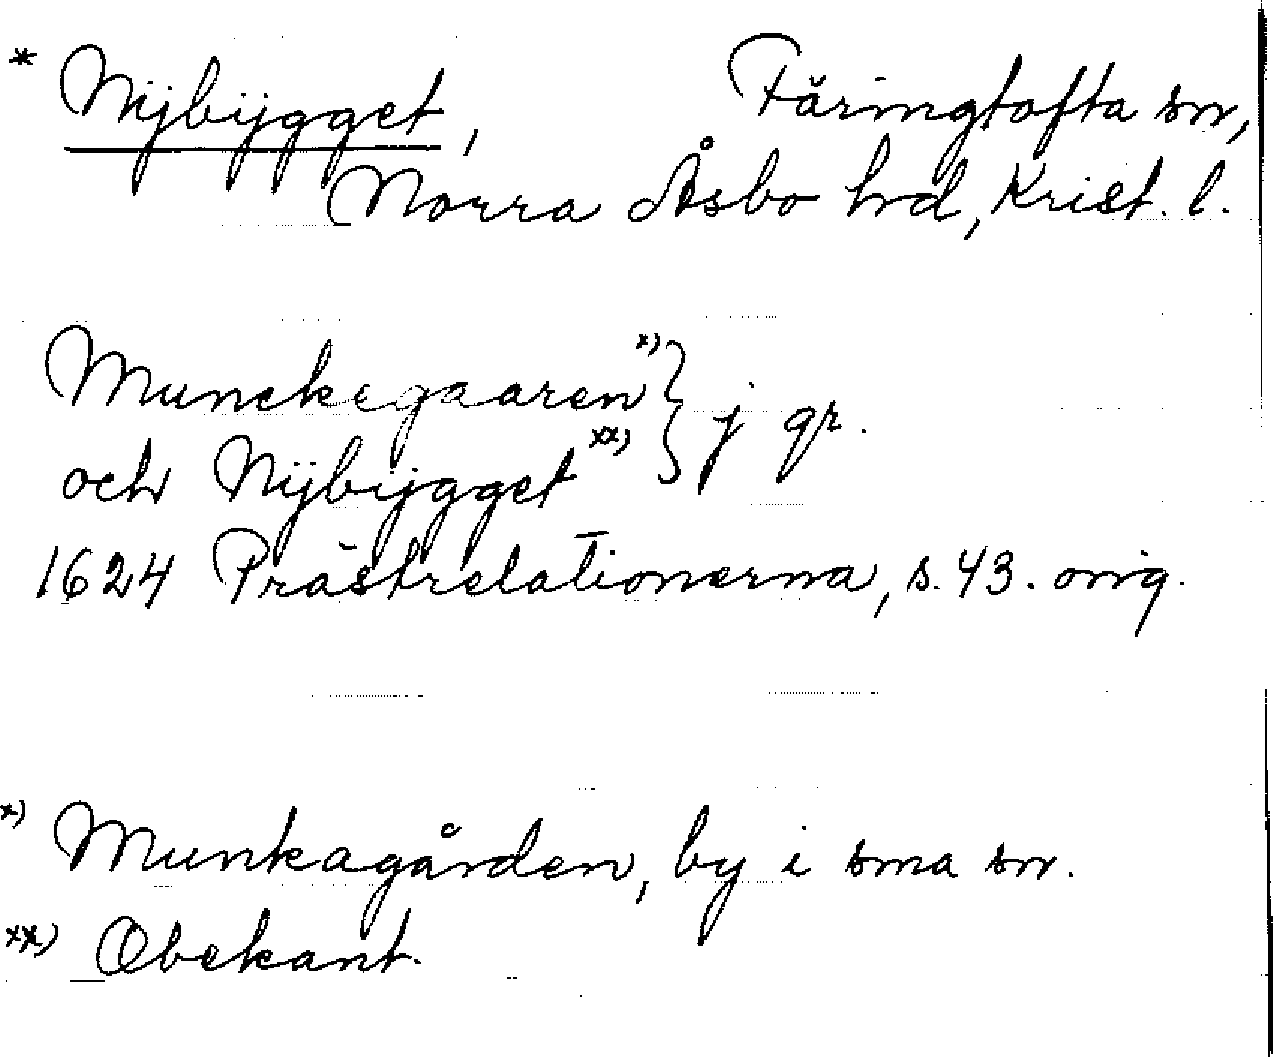 * Nÿbÿgget, Färingtofta sn,
Norra Åsbo hd, Krist. l.
Munckegaaren x) } j gr.
och Nÿbÿgget xx)
1624 Prästrelationerna, s. 43. orig.
x) Munkagården, by i sma sn.
xx) Obekant.